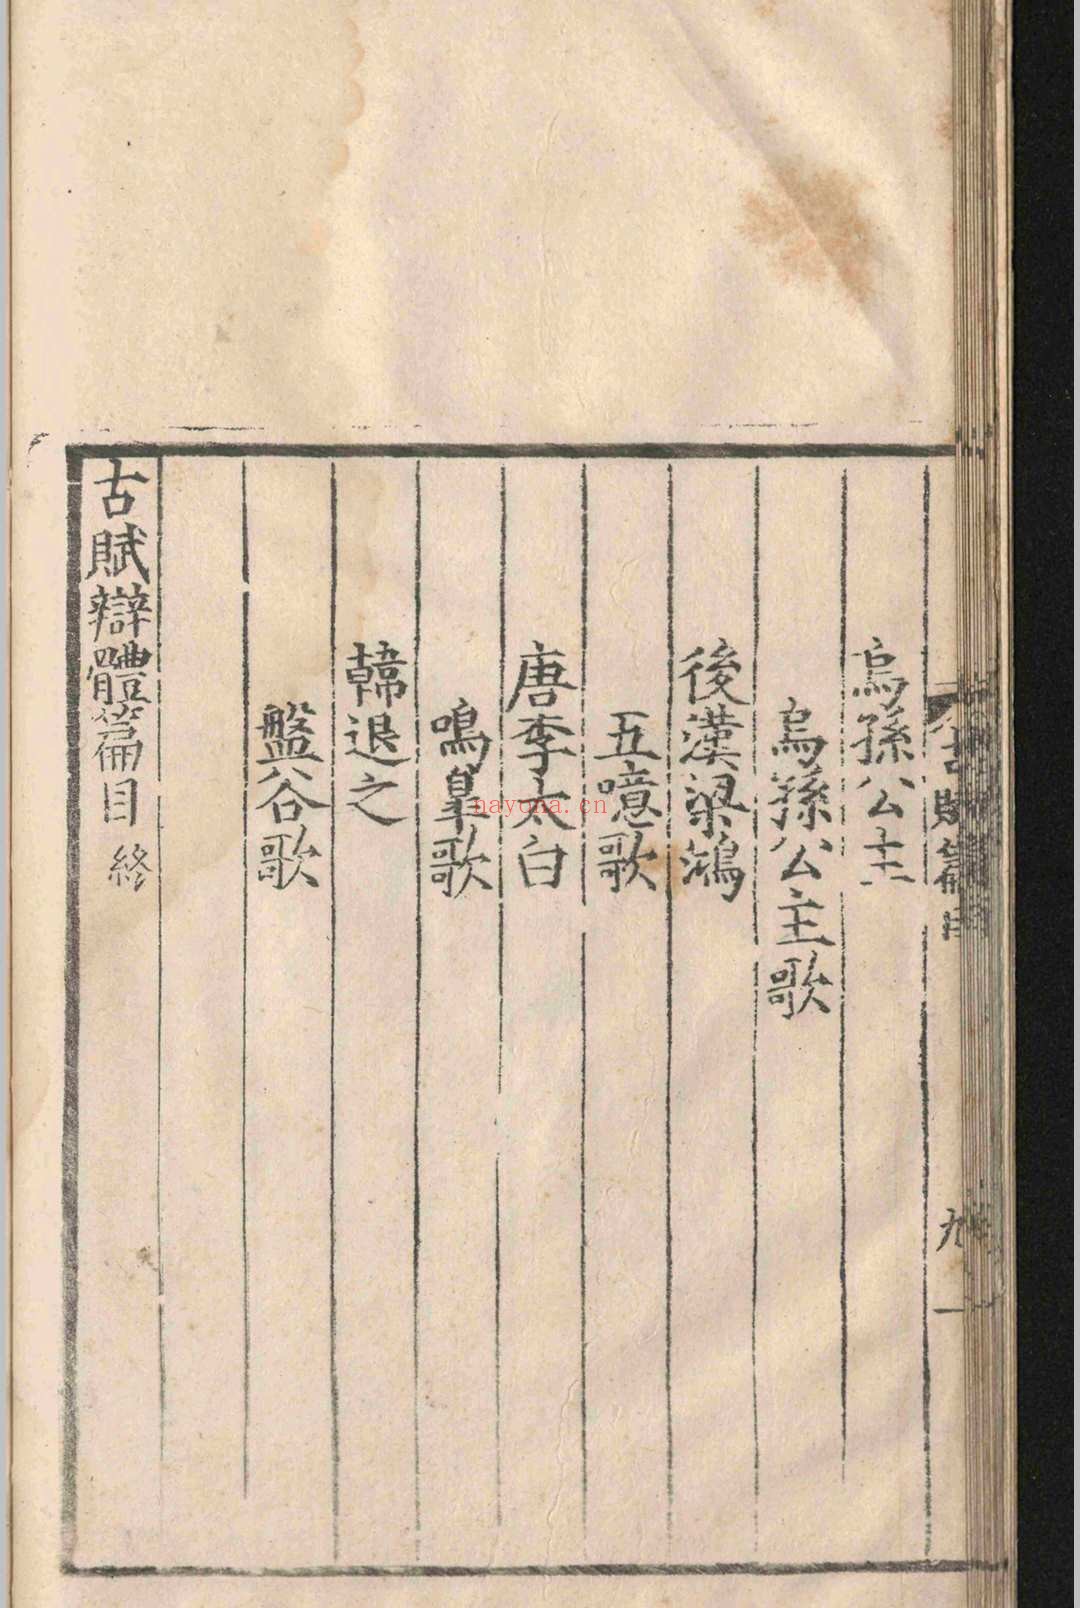 烏孫公主
烏孫公主歌
後漢梁鴻
五噫歌
唐李太白
鳴皋歌
韓退之
盤谷歌
古賦辯體篇目終
九
nayona.cn